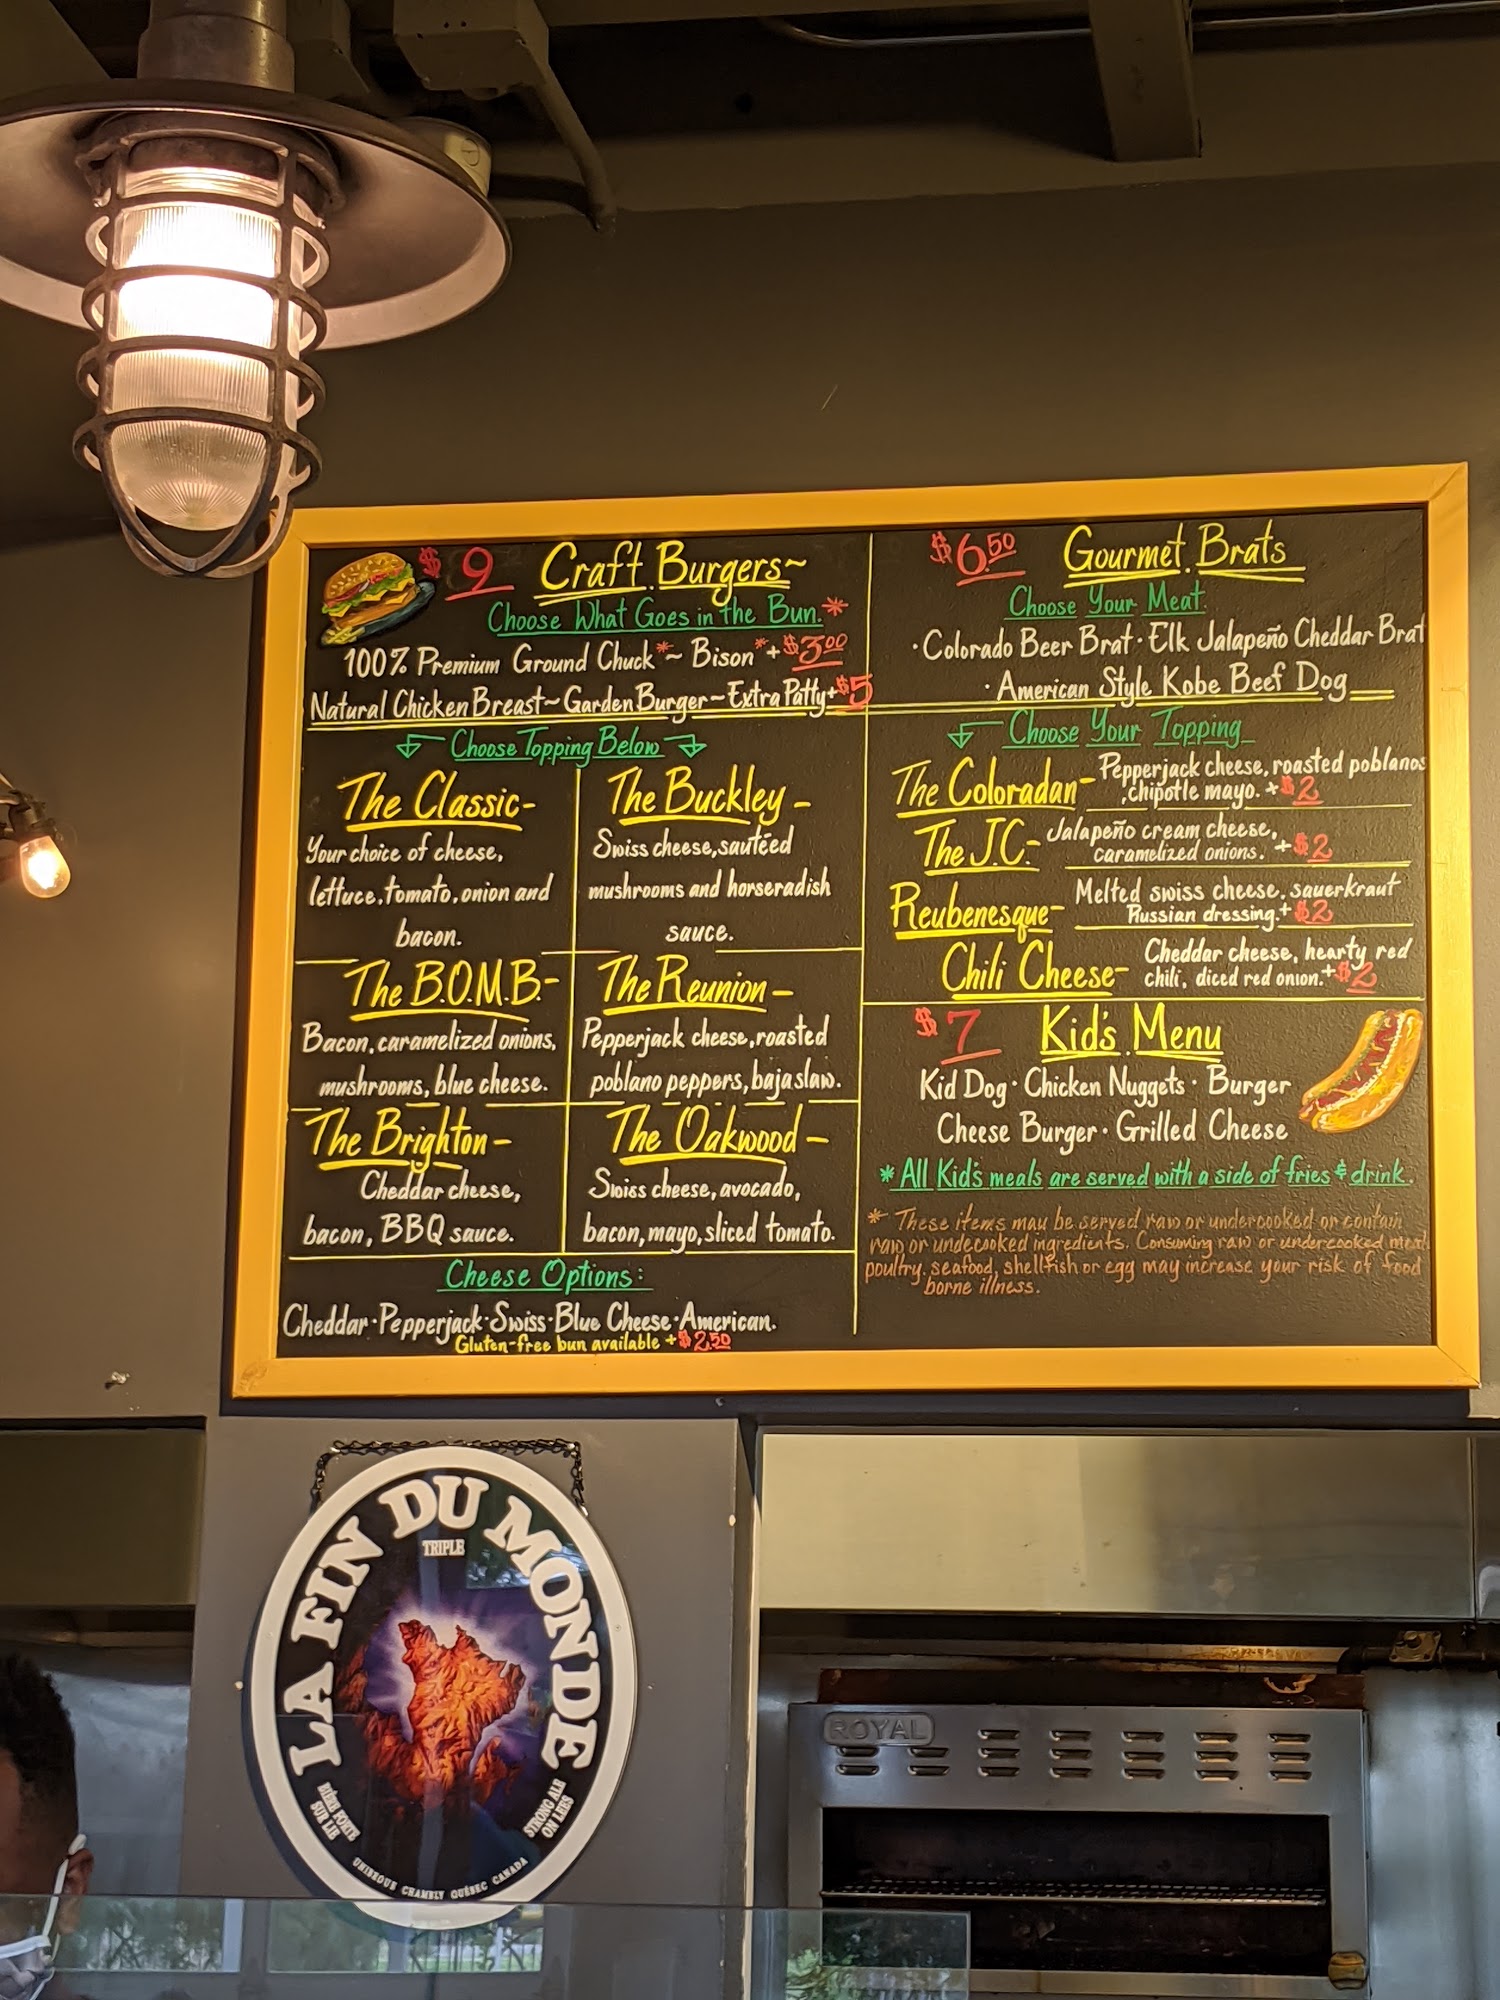 $9 Craft Burgers~
Choose What Goes in the Bun.*
100% Premium Ground Chuck*~ Bison*+$3.00
Natural Chicken Breast~Garden Burger~Extra Patty+$5
Choose Topping Below
The Classic-
Your choice of cheese,
lettuce, tomato, onion and
bacon.
The Buckley-
Swiss cheese, sautéed
mushrooms and horseradish
sauce.
The B.O.M.B.-
Bacon, caramelized onions,
mushrooms, blue cheese.
The Reunion-
Pepperjack cheese, roasted
poblano peppers, baja slaw.
The Brighton-
Cheddar cheese,
bacon, BBQ sauce.
The Oakwood-
Swiss cheese, avocado,
bacon, mayo, sliced tomato.
Cheese Options:
Cheddar·Pepperjack·Swiss·Blue Cheese·American.
Gluten-free bun available +$2.50
$6.50 Gourmet Brats
Choose Your Meat
·Colorado Beer Brat·Elk Jalapeño Cheddar Brat
·American Style Kobe Beef Dog
Choose Your Topping
The Coloradan- Pepperjack cheese, roasted poblanos
, chipotle mayo. +$2
The J.C.- Jalapeño cream cheese,
caramelized onions. +$2
Reubenesque- Melted swiss cheese, sauerkraut
Russian dressing.+$2
Chili Cheese- Cheddar cheese, hearty red
chili, diced red onion.+$2
$7 Kid's Menu
Kid Dog·Chicken Nuggets·Burger
Cheese Burger·Grilled Cheese
*All Kid's meals are served with a side of fries & drink.
* These items may be served raw or undercooked or contain
raw or undecooked ingredients. Consuming raw or undercooked meat
poultry, seafood, shellfish or egg may increase your risk of food
borne illness.
LA FIN DU MONDE
TRIPLE
BIÈRE FORTE
SUR LIE
STRONG ALE
ON LEES
UNIBROUE CHAMBLY QUÉBEC CANADA
ROYAL